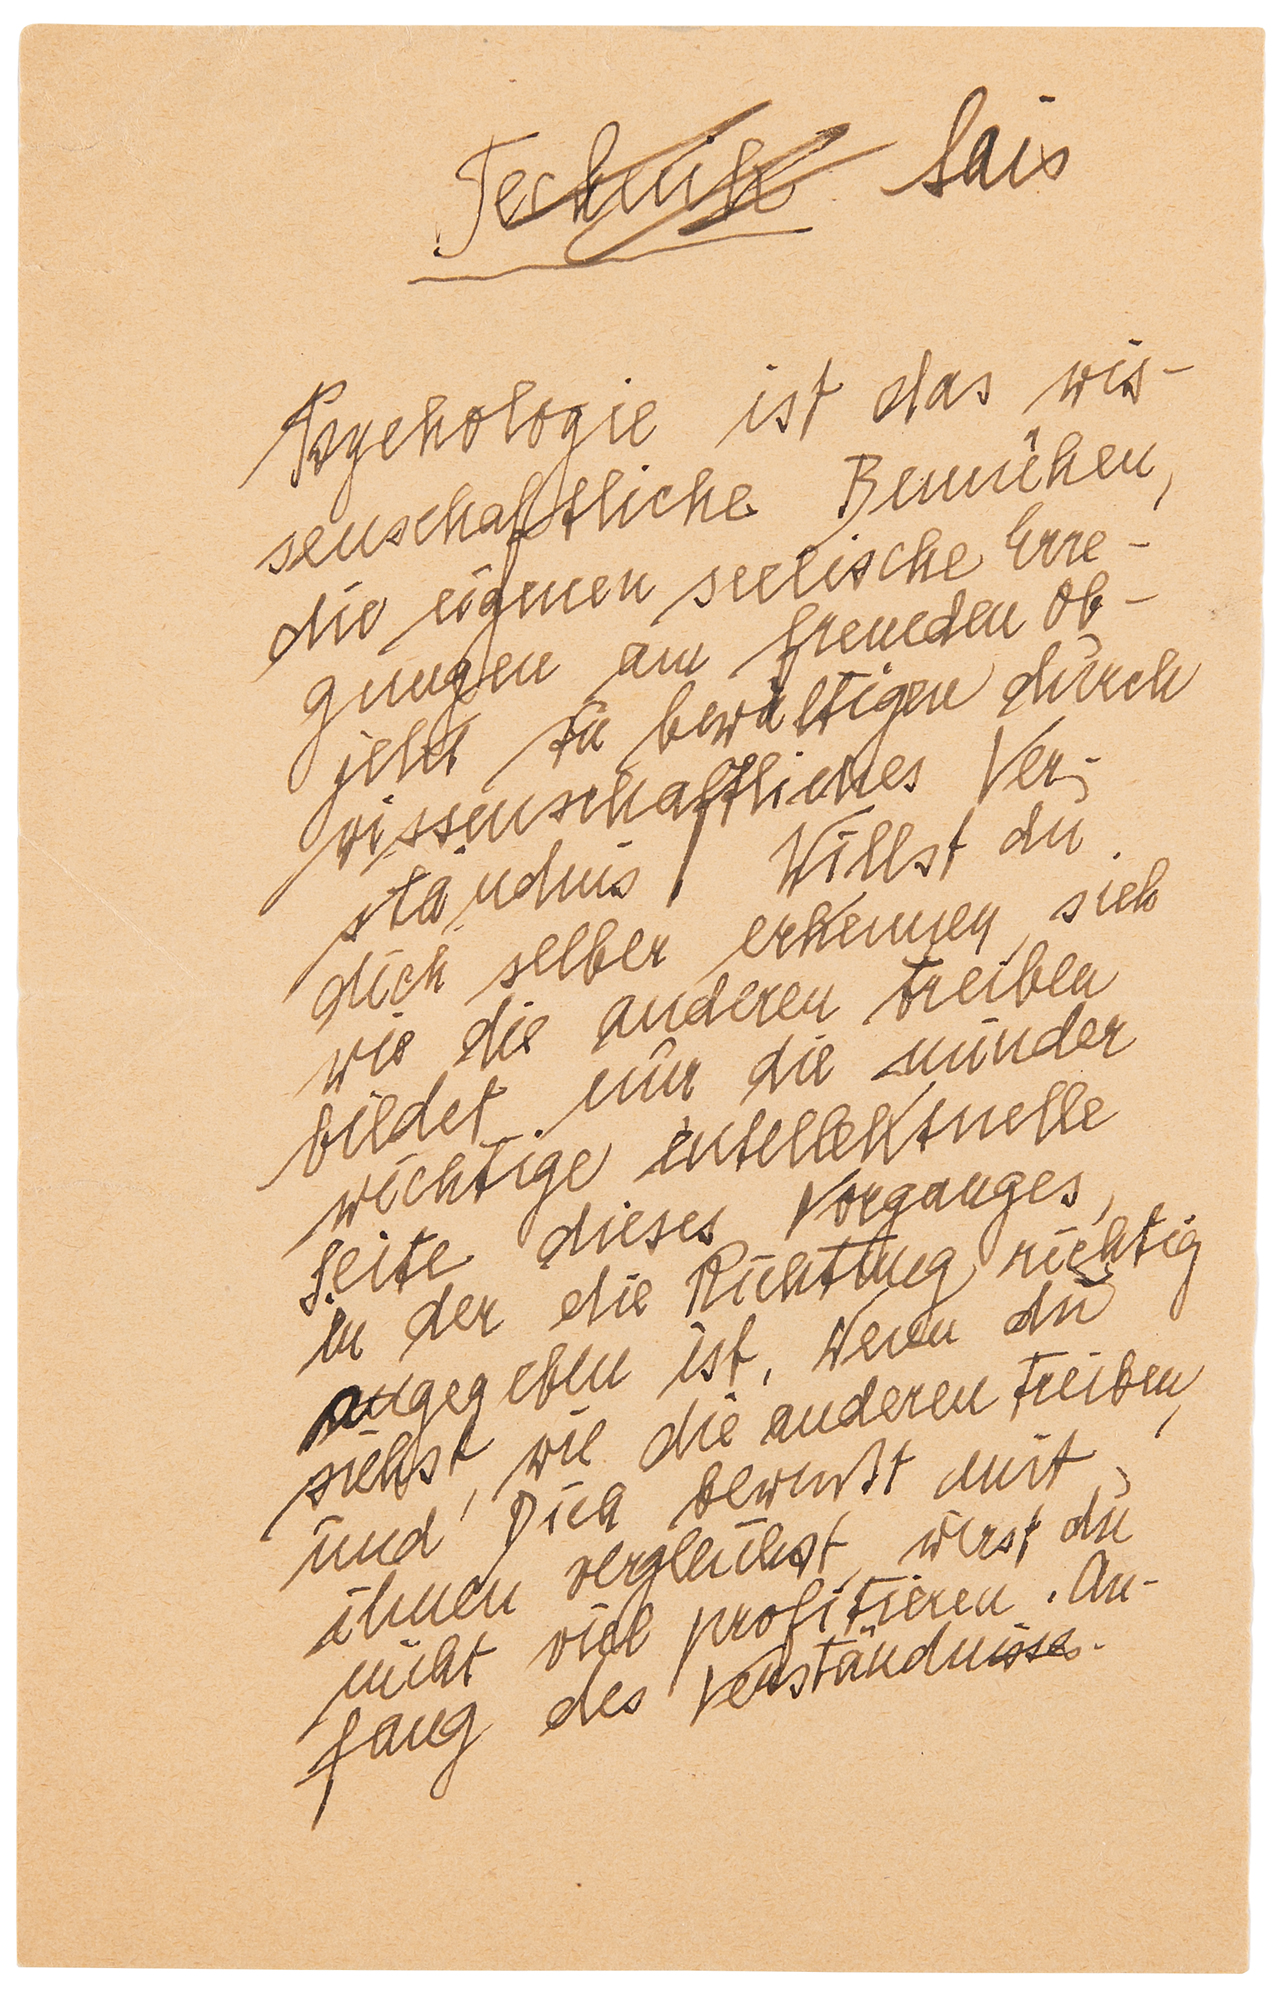 Technik Sais
Psychologie ist das wis-
senschaftliche Bemühen,
die eigenen seelische Erre-
gungen am fremden Ob-
jekt zu bewältigen durch
wissenschaftliches Ver-
ständnis. Willst du
dich selber erkennen, sieh
wie die anderen treiben
bildet nur die minder
wichtige intellektuelle
Seite dieses Vorganges,
in der die Richtung richtig
angegeben ist. Wenn du
siehst, wie die anderen treiben,
und Dich bewußt mit
ihnen vergleichst, wirst du
nicht viel profitieren. An-
fang des Verständnisses.